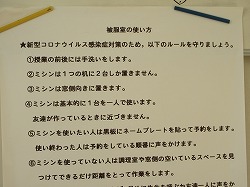 被服室の使い方
★新型コロナウイルス感染症対策のため，以下のルールを守りましょう。
①授業の前後には手洗いをします。
②ミシンは１つの机に２台しか置きません。
③ミシンは窓側向きに置きます。
④ミシンは基本的に１台を一人で使います。
友達が作っているときに近づきません。
⑤ミシンを使いたい人は黒板にネームプレートを貼って予約をします。
使い終わった人は予約をしている順番に声をかけます。
⑥ミシンを使っていない人は調理室や窓側の空いているスペースを見
つけてできるだけ距離をとって作業をします。